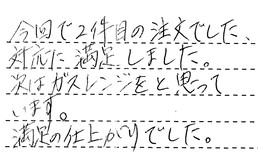 今回で2件目の注文でした、
対応に満足しました。
次はガスレンジをと思って
います。
満足の仕上がりでした。